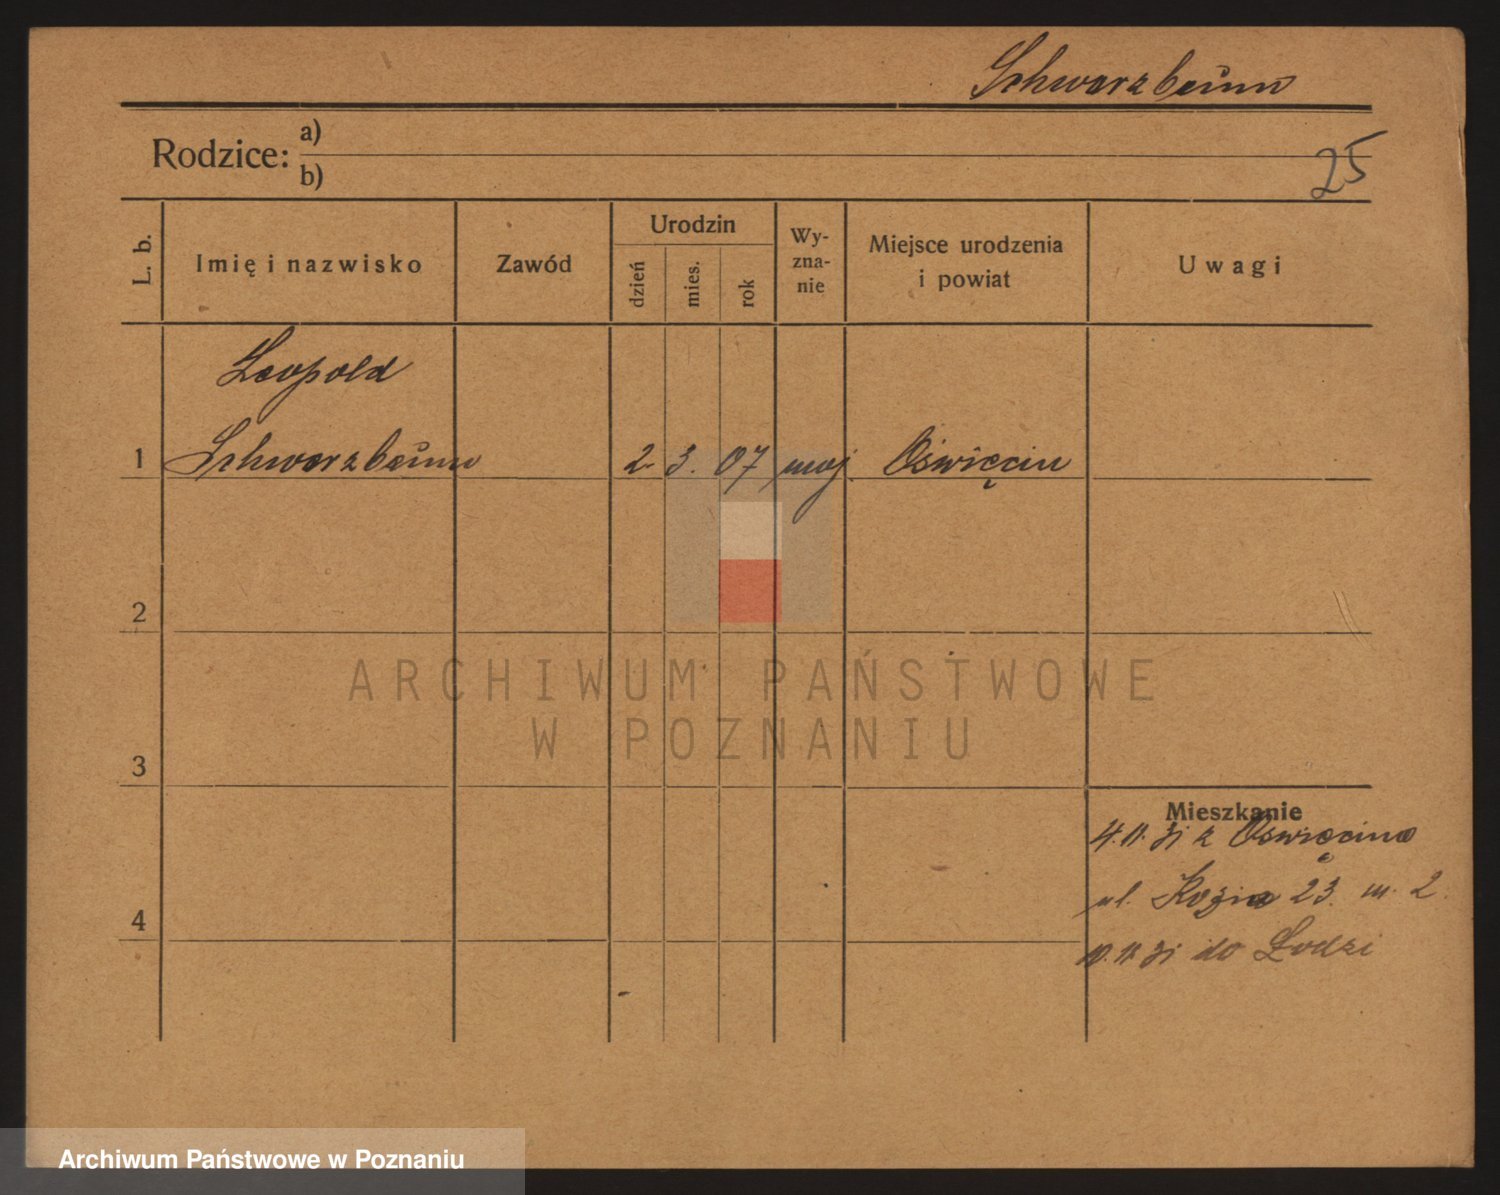 Schwarzbaum
Rodzice: a)
b)
25
L. b.
Imię i nazwisko
Zawód
Urodzin
dzień
mies.
rok
Wy-
zna-
nie
Miejsce urodzenia
i powiat
Uwagi
Leopold
1 Schwarzbaum 2. 3. 07 moj Oświęcim
2
ARCHIWUM PAŃSTWOWE
W POZNANIU
3
Mieszkanie
4.11.31 z Oświęcima
ul. Kozia 23. m. 2.
4
10.11.31 do Łodzi
Archiwum Państwowe w Poznaniu